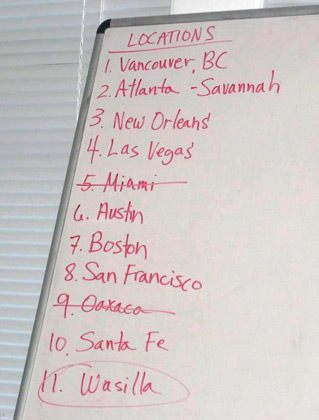 LOCATIONS
1. Vancouver, BC
2. Atlanta - Savannah
3. New Orleans
4. Las Vegas
5. Miami
6. Austin
7. Boston
8. San Francisco
9. Oaxaca
10. Santa Fe
11. Wasilla